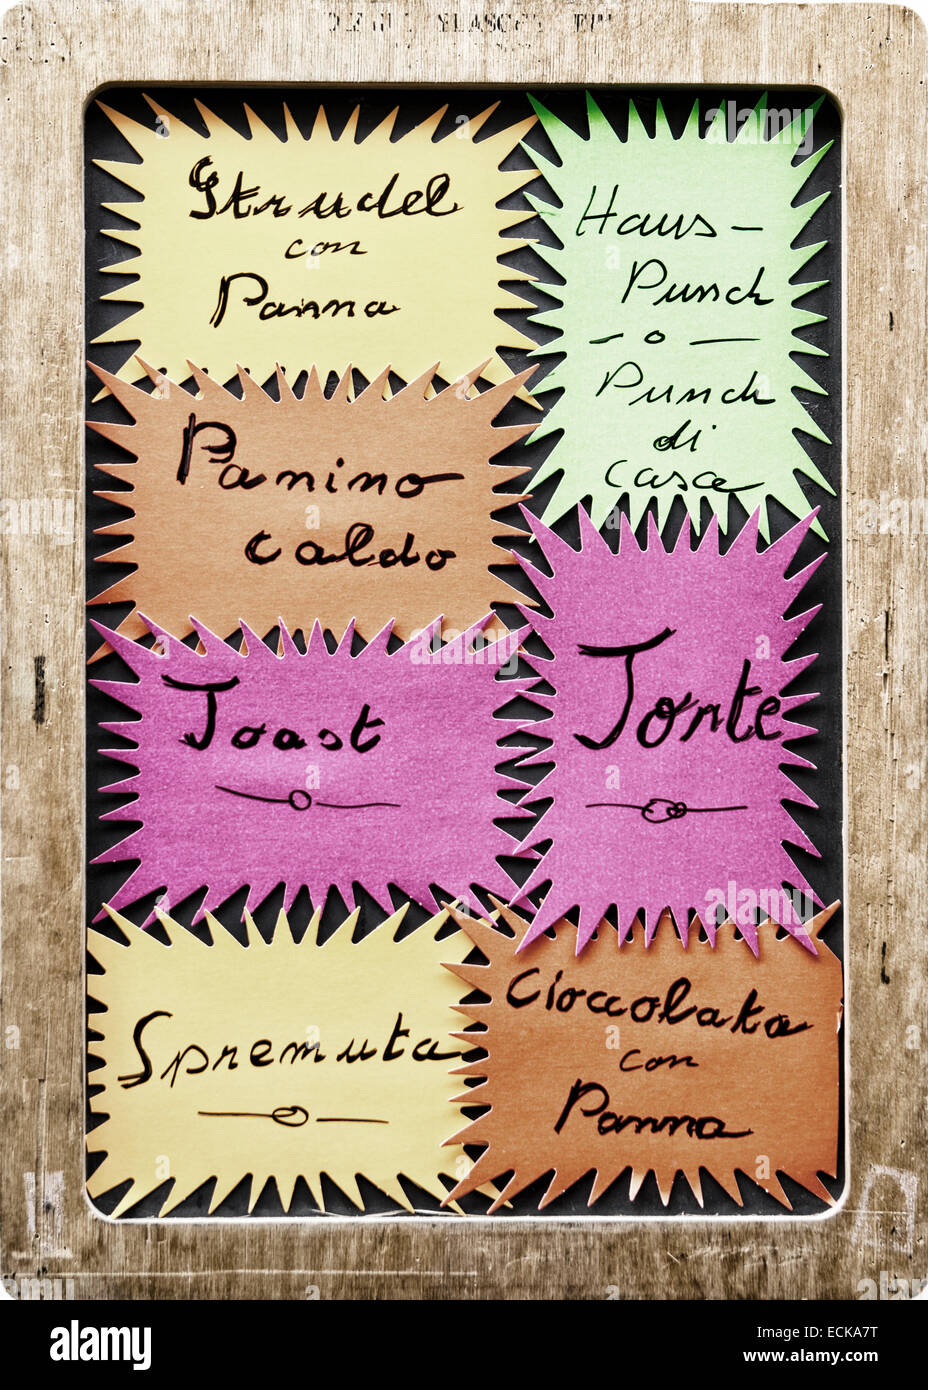 Strudel
con
Panna
Haus-
Punch
- o -
Punch
di
casa
Panino
caldo
Toast
Torte
Spremuta
Cioccolata
con
Panna
alamy
Image ID: ECKA7T
www.alamy.com